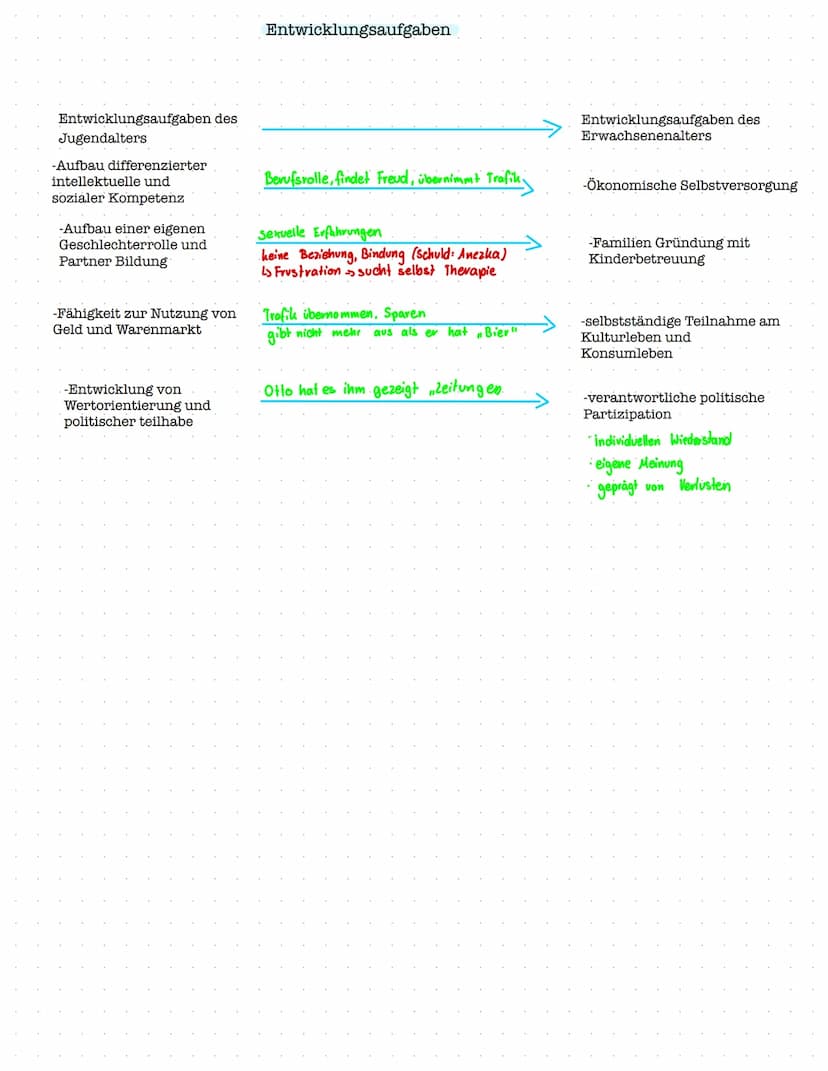 Entwicklungsaufgaben
Entwicklungsaufgaben des
Jugendalters
Entwicklungsaufgaben des
Erwachsenenalters
-Aufbau differenzierter
intellektuelle und
sozialer Kompetenz
Berufsrolle, findet Freud, übernimmt Trafik
-Ökonomische Selbstversorgung
-Aufbau einer eigenen
Geschlechterrolle und
Partner Bildung
sexuelle Erfahrungen
keine Beziehung, Bindung (Schuld: Anezka)
↳ Frustration → sucht selbst Therapie
-Familien Gründung mit
Kinderbetreuung
-Fähigkeit zur Nutzung von
Geld und Warenmarkt
Trafik übernommen, Sparen
gibt nicht mehr aus als er hat „Bier"
-selbstständige Teilnahme am
Kulturleben und
Konsumleben
-Entwicklung von
Wertorientierung und
politischer teilhabe
Otto hat es ihm gezeigt „Zeitungen
-verantwortliche politische
Partizipation
· individuellen Wiederstand
· eigene Meinung
· geprägt von Verlusten